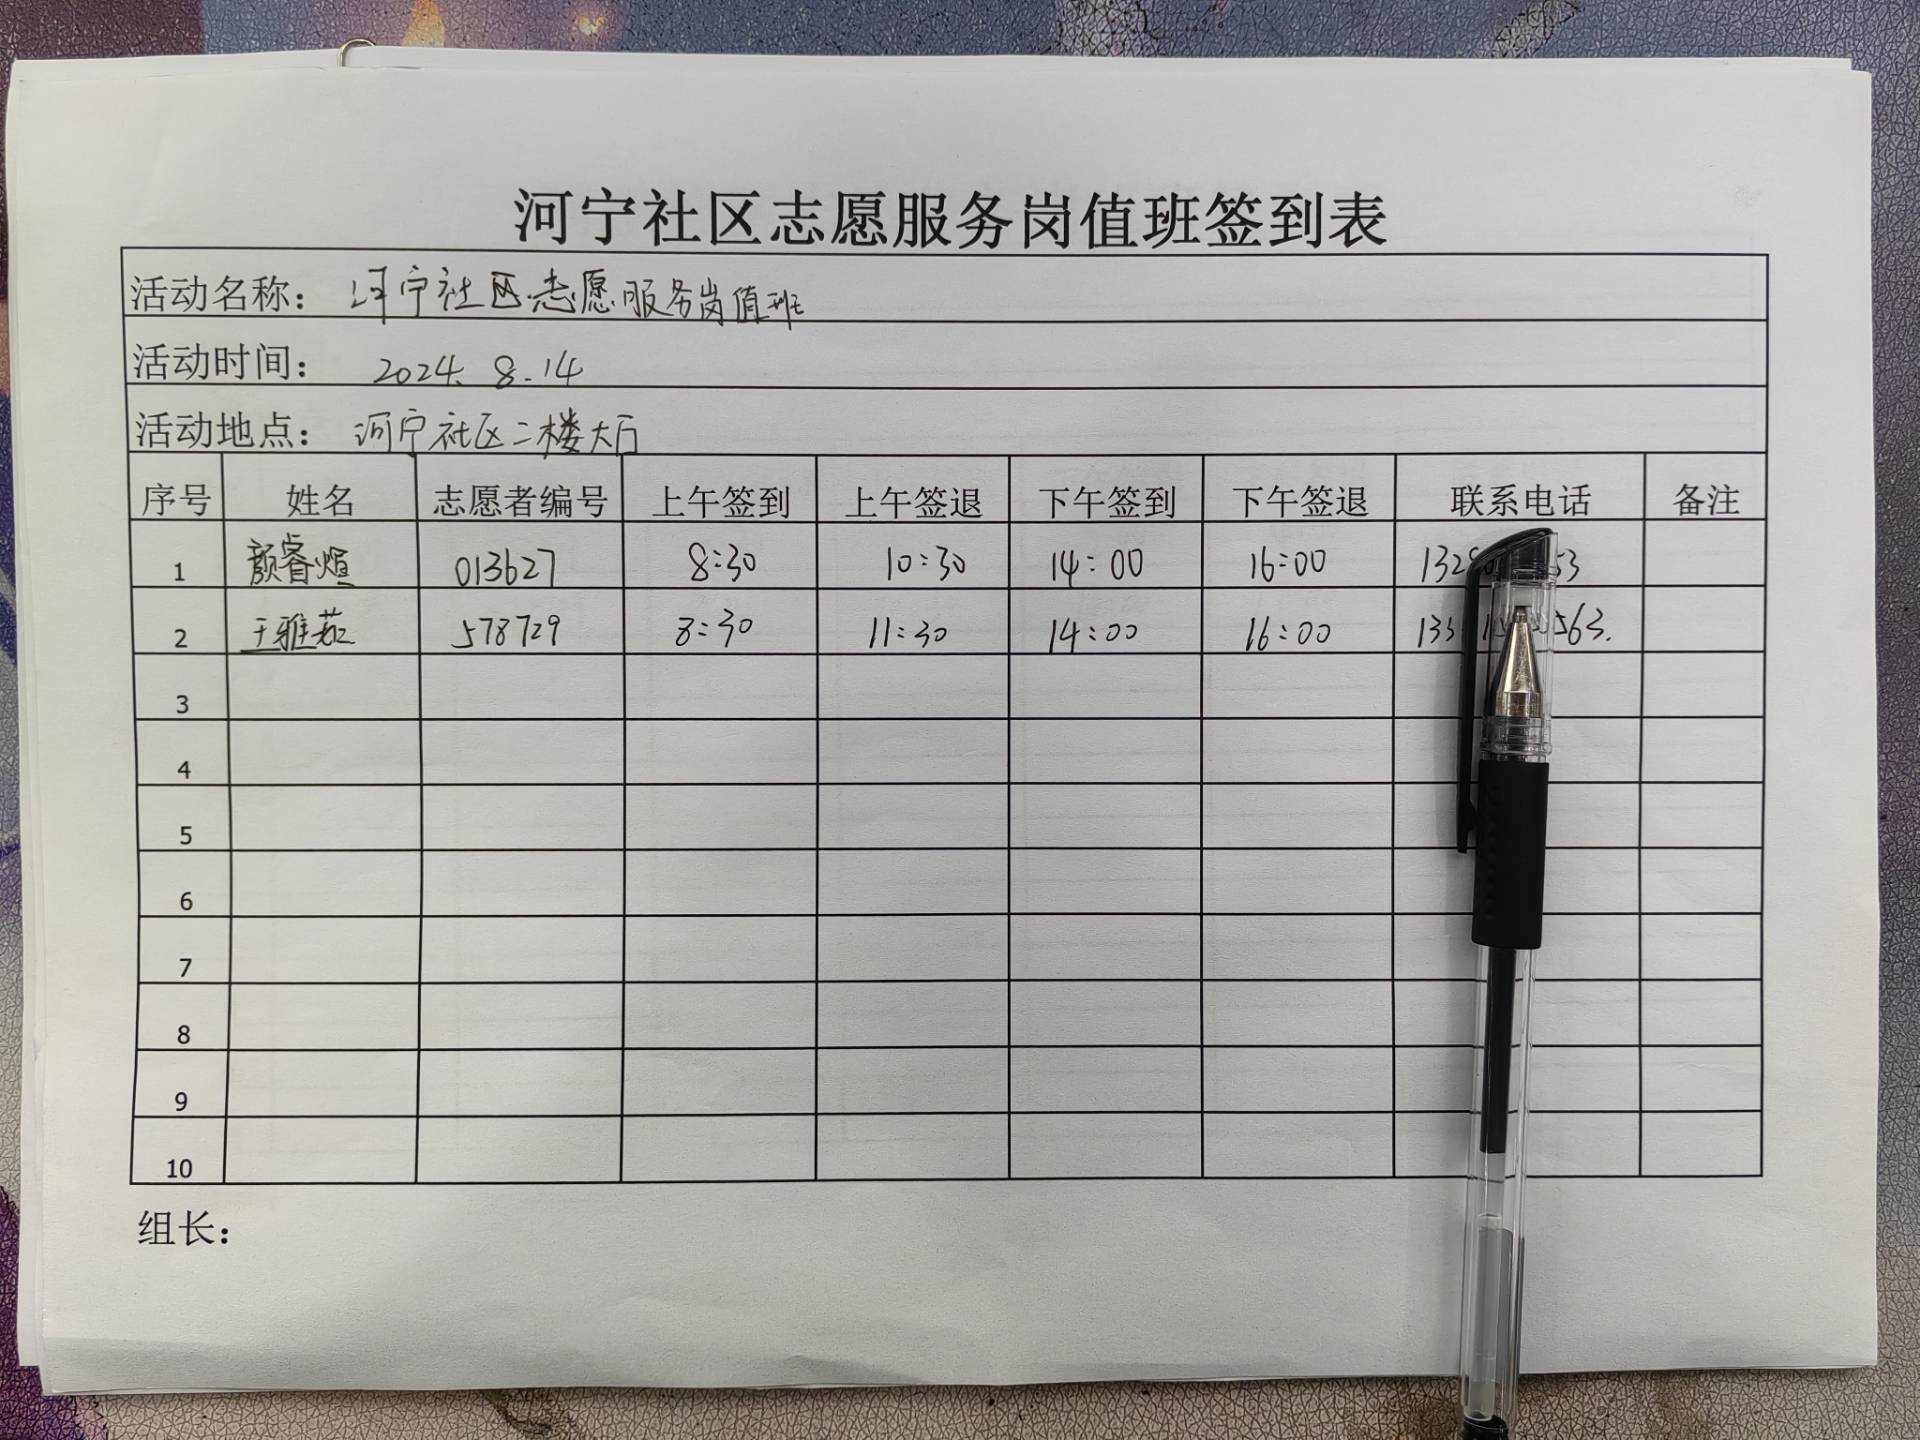 河宁社区志愿服务岗值班签到表
活动名称： 河宁社区志愿服务岗值班
活动时间： 2024.8.14
活动地点： 河宁社区二楼大厅
序号 姓名 志愿者编号 上午签到 上午签退 下午签到 下午签退 联系电话 备注
1 颜睿煊 013627 8:30 10:30 14:00 16:00 132 53
2 王雅茹 578729 8:30 11:30 14:00 16:00 133 563.
3
4
5
6
7
8
9
10
组长：